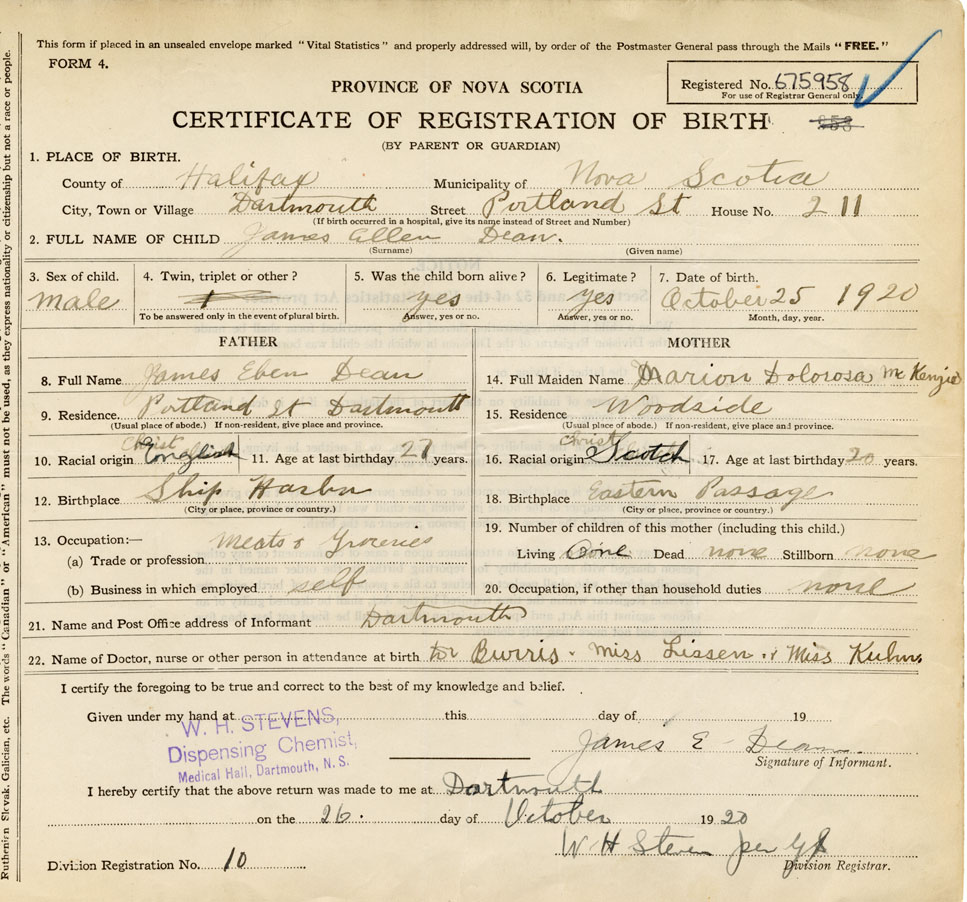 This form if placed in an unsealed envelope marked "Vital Statistics" and properly addressed will, by order of the Postmaster General pass through the Mails "FREE."
FORM 4.
Registered No. 675958
For use of Registrar General only.
PROVINCE OF NOVA SCOTIA
CERTIFICATE OF REGISTRATION OF BIRTH
(BY PARENT OR GUARDIAN)
1. PLACE OF BIRTH.
County of Halifax Municipality of Nova Scotia
City, Town or Village Dartmouth Street Portland St House No. 211
(If birth occurred in a hospital, give its name instead of Street and Number)
2. FULL NAME OF CHILD James Allen Dean.
(Surname) (Given name)
3. Sex of child. 4. Twin, triplet or other? 5. Was the child born alive? 6. Legitimate? 7. Date of birth.
male yes yes October 25 1920
To be answered only in the event of plural birth. Answer, yes or no. Answer, yes or no. Month, day, year.
FATHER MOTHER
8. Full Name James Eben Dean 14. Full Maiden Name Marion Dolorosa McKenzie
9. Residence. Portland St Dartmouth 15. Residence Woodside
(Usual place of abode.) If non-resident, give place and province. (Usual place of abode.) If non-resident, give place and province.
Christ Christ
10. Racial origin English 11. Age at last birthday 27 years. 16. Racial origin Scotch 17. Age at last birthday 20 years.
12. Birthplace Ship Harbor 18. Birthplace Eastern Passage
(City or place, province or country.) (City or place, province or country.)
13. Occupation:— 19. Number of children of this mother (including this child.)
(a) Trade or profession Meats & Groceries Living One Dead none Stillborn none
(b) Business in which employed self 20. Occupation, if other than household duties none
21. Name and Post Office address of Informant Dartmouth
22. Name of Doctor, nurse or other person in attendance at birth Dr Burris. Miss Lissen. & Miss Kuhn.
I certify the foregoing to be true and correct to the best of my knowledge and belief.
Given under my hand at this day of 19
W. H. STEVENS,
Dispensing Chemist,
Medical Hall, Dartmouth, N. S.
James E Dean.
Signature of Informant.
I hereby certify that the above return was made to me at Dartmouth
on the 26. day of October 1920
W H Steven per
Division Registration No. 10 Division Registrar.
Ruthenian Slovak, Galician, etc. The words "Canadian" or "American" must not be used, as they express nationality or citizenship but not a race or people.